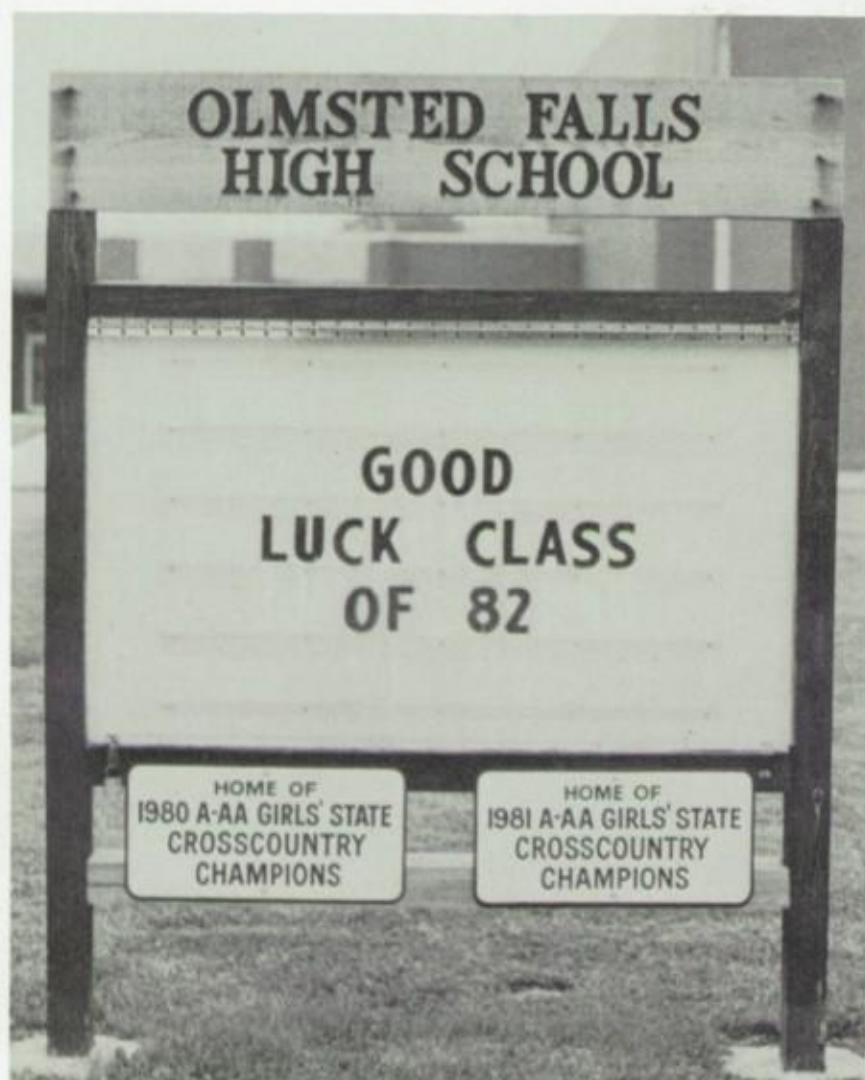 OLMSTED FALLS
HIGH SCHOOL
GOOD
LUCK CLASS
OF 82
HOME OF
1980 A-AA GIRLS' STATE
CROSSCOUNTRY
CHAMPIONS
HOME OF
1981 A-AA GIRLS' STATE
CROSSCOUNTRY
CHAMPIONS